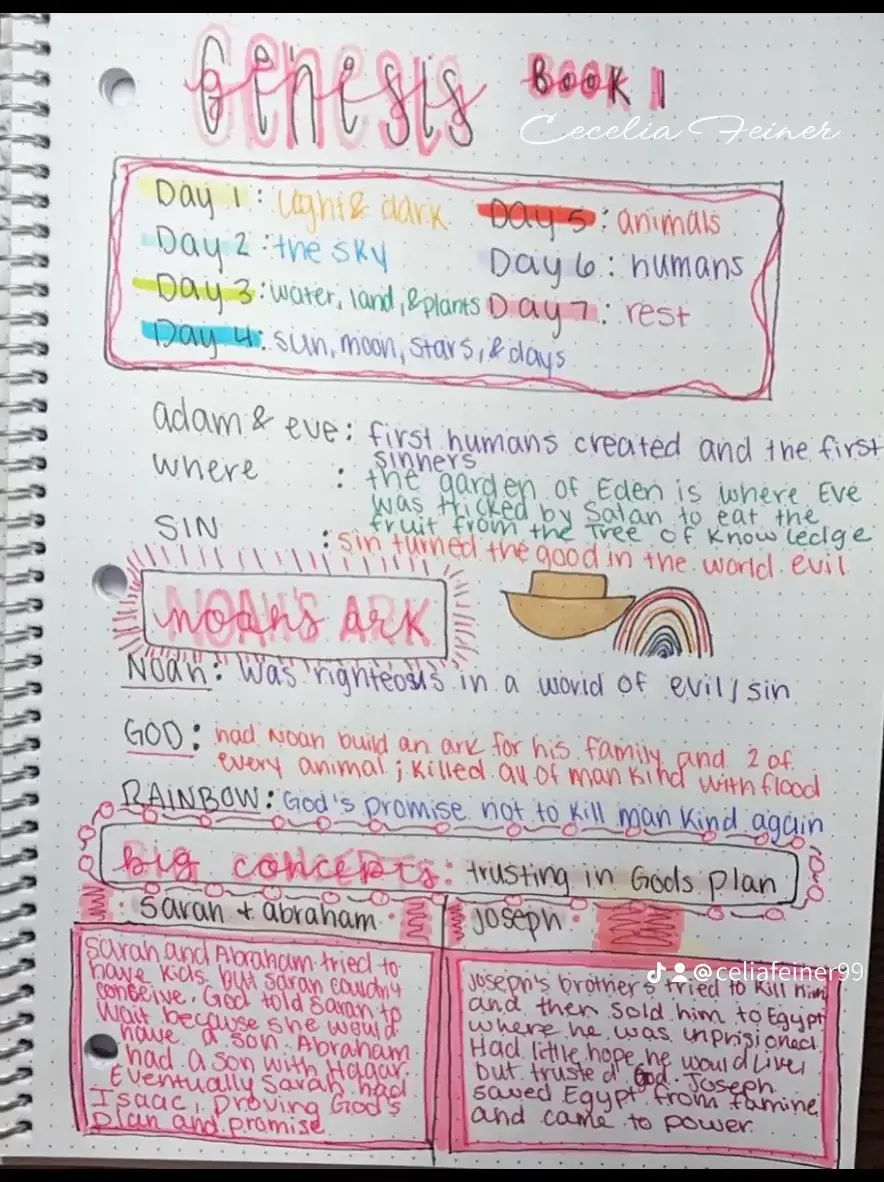 Genesis Book 1
Cecelia Feiner
Day 1: Light & dark
Day 2: the sky
Day 3: water, land, & plants
Day 4: sun, moon, stars, & days
Day 5: animals
Day 6: humans
Day 7: rest
adam & eve: first humans created and the first
sinners
where : the garden of Eden is where Eve
was tricked by Satan to eat the
fruit from the Tree of Knowledge
SIN : sin turned the good in the world evil
NOAH'S ARK
Noah: Was righteous in a world of evil/sin
GOD: had Noah build an ark for his family and 2 of
every animal; killed all of man kind with flood
RAINBOW: God's promise not to kill man kind again
big concepts: trusting in Gods plan
Sarah + abraham
Sarah and Abraham tried to
have kids but Sarah couldn't
conceive. God told Sarah to
wait because she would
have a son. Abraham
had a son with Hagar.
Eventually Sarah had
Isaac, proving God's
plan and promise
joseph
@celiafeiner99
Joseph's brothers tried to kill him
and then sold him to Egypt
where he was inprisioned.
Had little hope he would live,
but trusted God. Joseph
saved Egypt from famine
and came to power